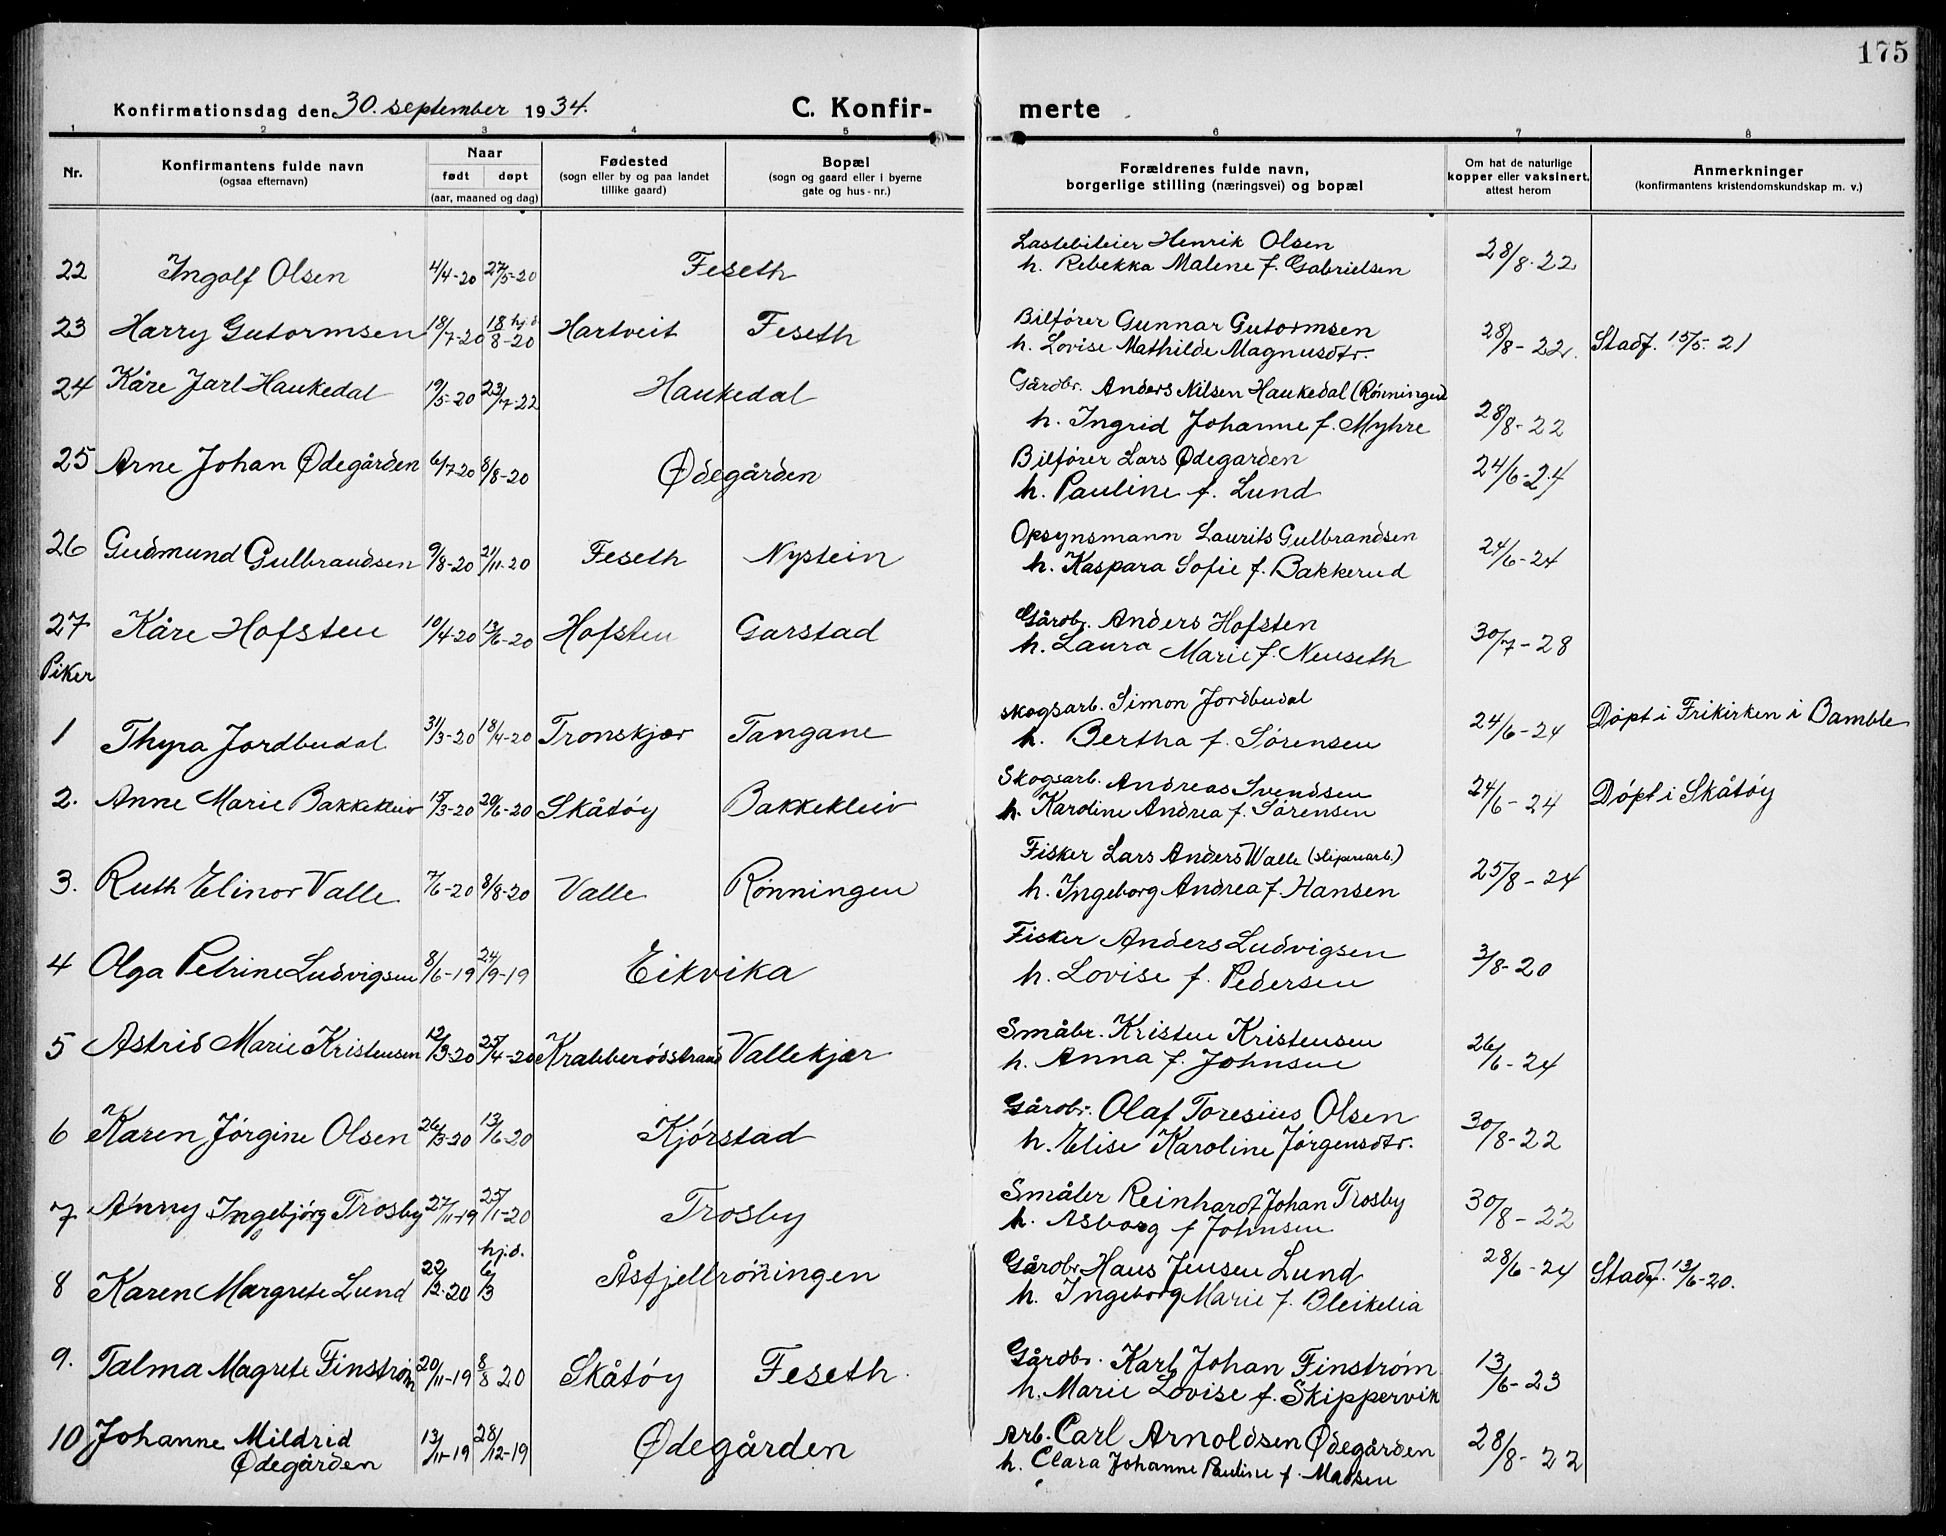 175
Konfirmationsdag den 30. september 1934.
C. Konfir-
merte
1 2 3 4 5 6 7 8
Nr.
Konfirmantens fulde navn
(ogsaa efternavn)
Naar
født døpt
(aar, maaned og dag)
Fødested
(sogn eller by og paa landet
tillike gaard)
Bopæl
(sogn og gaard eller i byerne
gate og hus-nr.)
Forældrenes fulde navn,
borgerlige stilling (næringsvei) og bopæl
Om hat de naturlige
kopper eller vaksinert,
attest herom
Anmerkninger
(konfirmantens kristendomskundskap m. v.)
22 Ingolf Olsen 4/4-20 27/5-20 Feseth
Lastebileier Henrik Olsen
h. Rebekka Malene f. Gabrielsen 28/8-22
23 Harry Gutormsen 18/7-20 18/8-20 hj.d. Hartveit Feseth
Bilfører Gunnar Gutormsen
h. Lovise Mathilde Magnusdtr. 28/8-22. Stadf. 15/5-21
24 Kåre Jarl Haukedal 19/5-20 23/7-22 Haukedal
Gårdbr. Anders Nilsen Haukedal (Rønningen)
h. Ingrid Johanne f. Myhre 28/8-22
25 Arne Johan Ødegården 6/7-20 8/8-20 Ødegården
Bilfører Lars Ødegarden
h. Pauline f. Lund 24/6-24
26 Gudmund Gulbrandsen 9/8-20 21/11-20 Feseth Nystein
Opsynsmann Laurits Gulbrandsen
h. Kaspara Sofie f. Bakkerud 24/6-24
27 Kåre Hofsten 10/4-20 13/6-20 Hofsten Garstad
Gårdb. Anders Hofsten
h. Laura Marie f. Neuseth 30/7-28
Piker
1 Thyra Jordbudal 31/3-20 18/4-20 Tronskjær Tangane
skogsarb. Simon Jordbudal
h. Bertha f. Sørensen 24/6-24 Døpt i Frikirken i Bamble
2. Anne Marie Bakkekleiv 15/3-20 20/6-20 Skåtøy Bakkekleiv
Skogsarb. Andreas Svendsen
h. Karoline Andrea f. Sørensen 24/6-24 Døpt i Skåtøy
3. Ruth Elinor Valle 7/6-20 8/8-20 Valle Rønningen
Fisker Lars Anders Walle (sliperiarb.)
h. Ingeborg Andrea f. Hansen 25/8-24
4 Olga Petrine Ludvigsen 8/6-19 24/9-19 Eikvika
Fisker Anders Ludvigsen
h. Lovise f. Pedersen 3/8-20
5 Astrid Marie Kristensen 12/3-20 25/4-20 Krabberødstrand Vallekjær
Småbr. Kristen Kristensen
h. Anna f. Johnsen 26/6-24
6 Karen Jørgine Olsen 26/3-20 13/6-20 Kjørstad
Gårdbr. Olaf Toresius Olsen
h. Elise Karoline Jørgensdtr. 30/8-22
7 Anny Ingebjørg Trosby 27/11-19 25/1-20 Trosby
Småbr Reinhardt Johan Trosby
h. Asborg f Johnsen 30/8-22
8 Karen Margrete Lund 22/12-20 hj.d. 6/3 Åsfjellrøningen
Gårdbr Hans Jensen Lund
h. Ingeborg Marie f. Bleikelia 28/6-24 Stadf. 13/6-20.
9. Talma Magrete Finstrøm 20/11-19 8/8 20 Skåtøy Feseth.
Gårdbr. Karl Johan Finstrøm
h. Marie Lovise f. Skippervik 13/6-23
10 Johanne Mildrid Ødegården 13/11-19 28/12-19 Ødegården
Arb. Carl Arnoldsen Ødegården
h. Clara Johanne Pauline f. Madsen 28/8-22